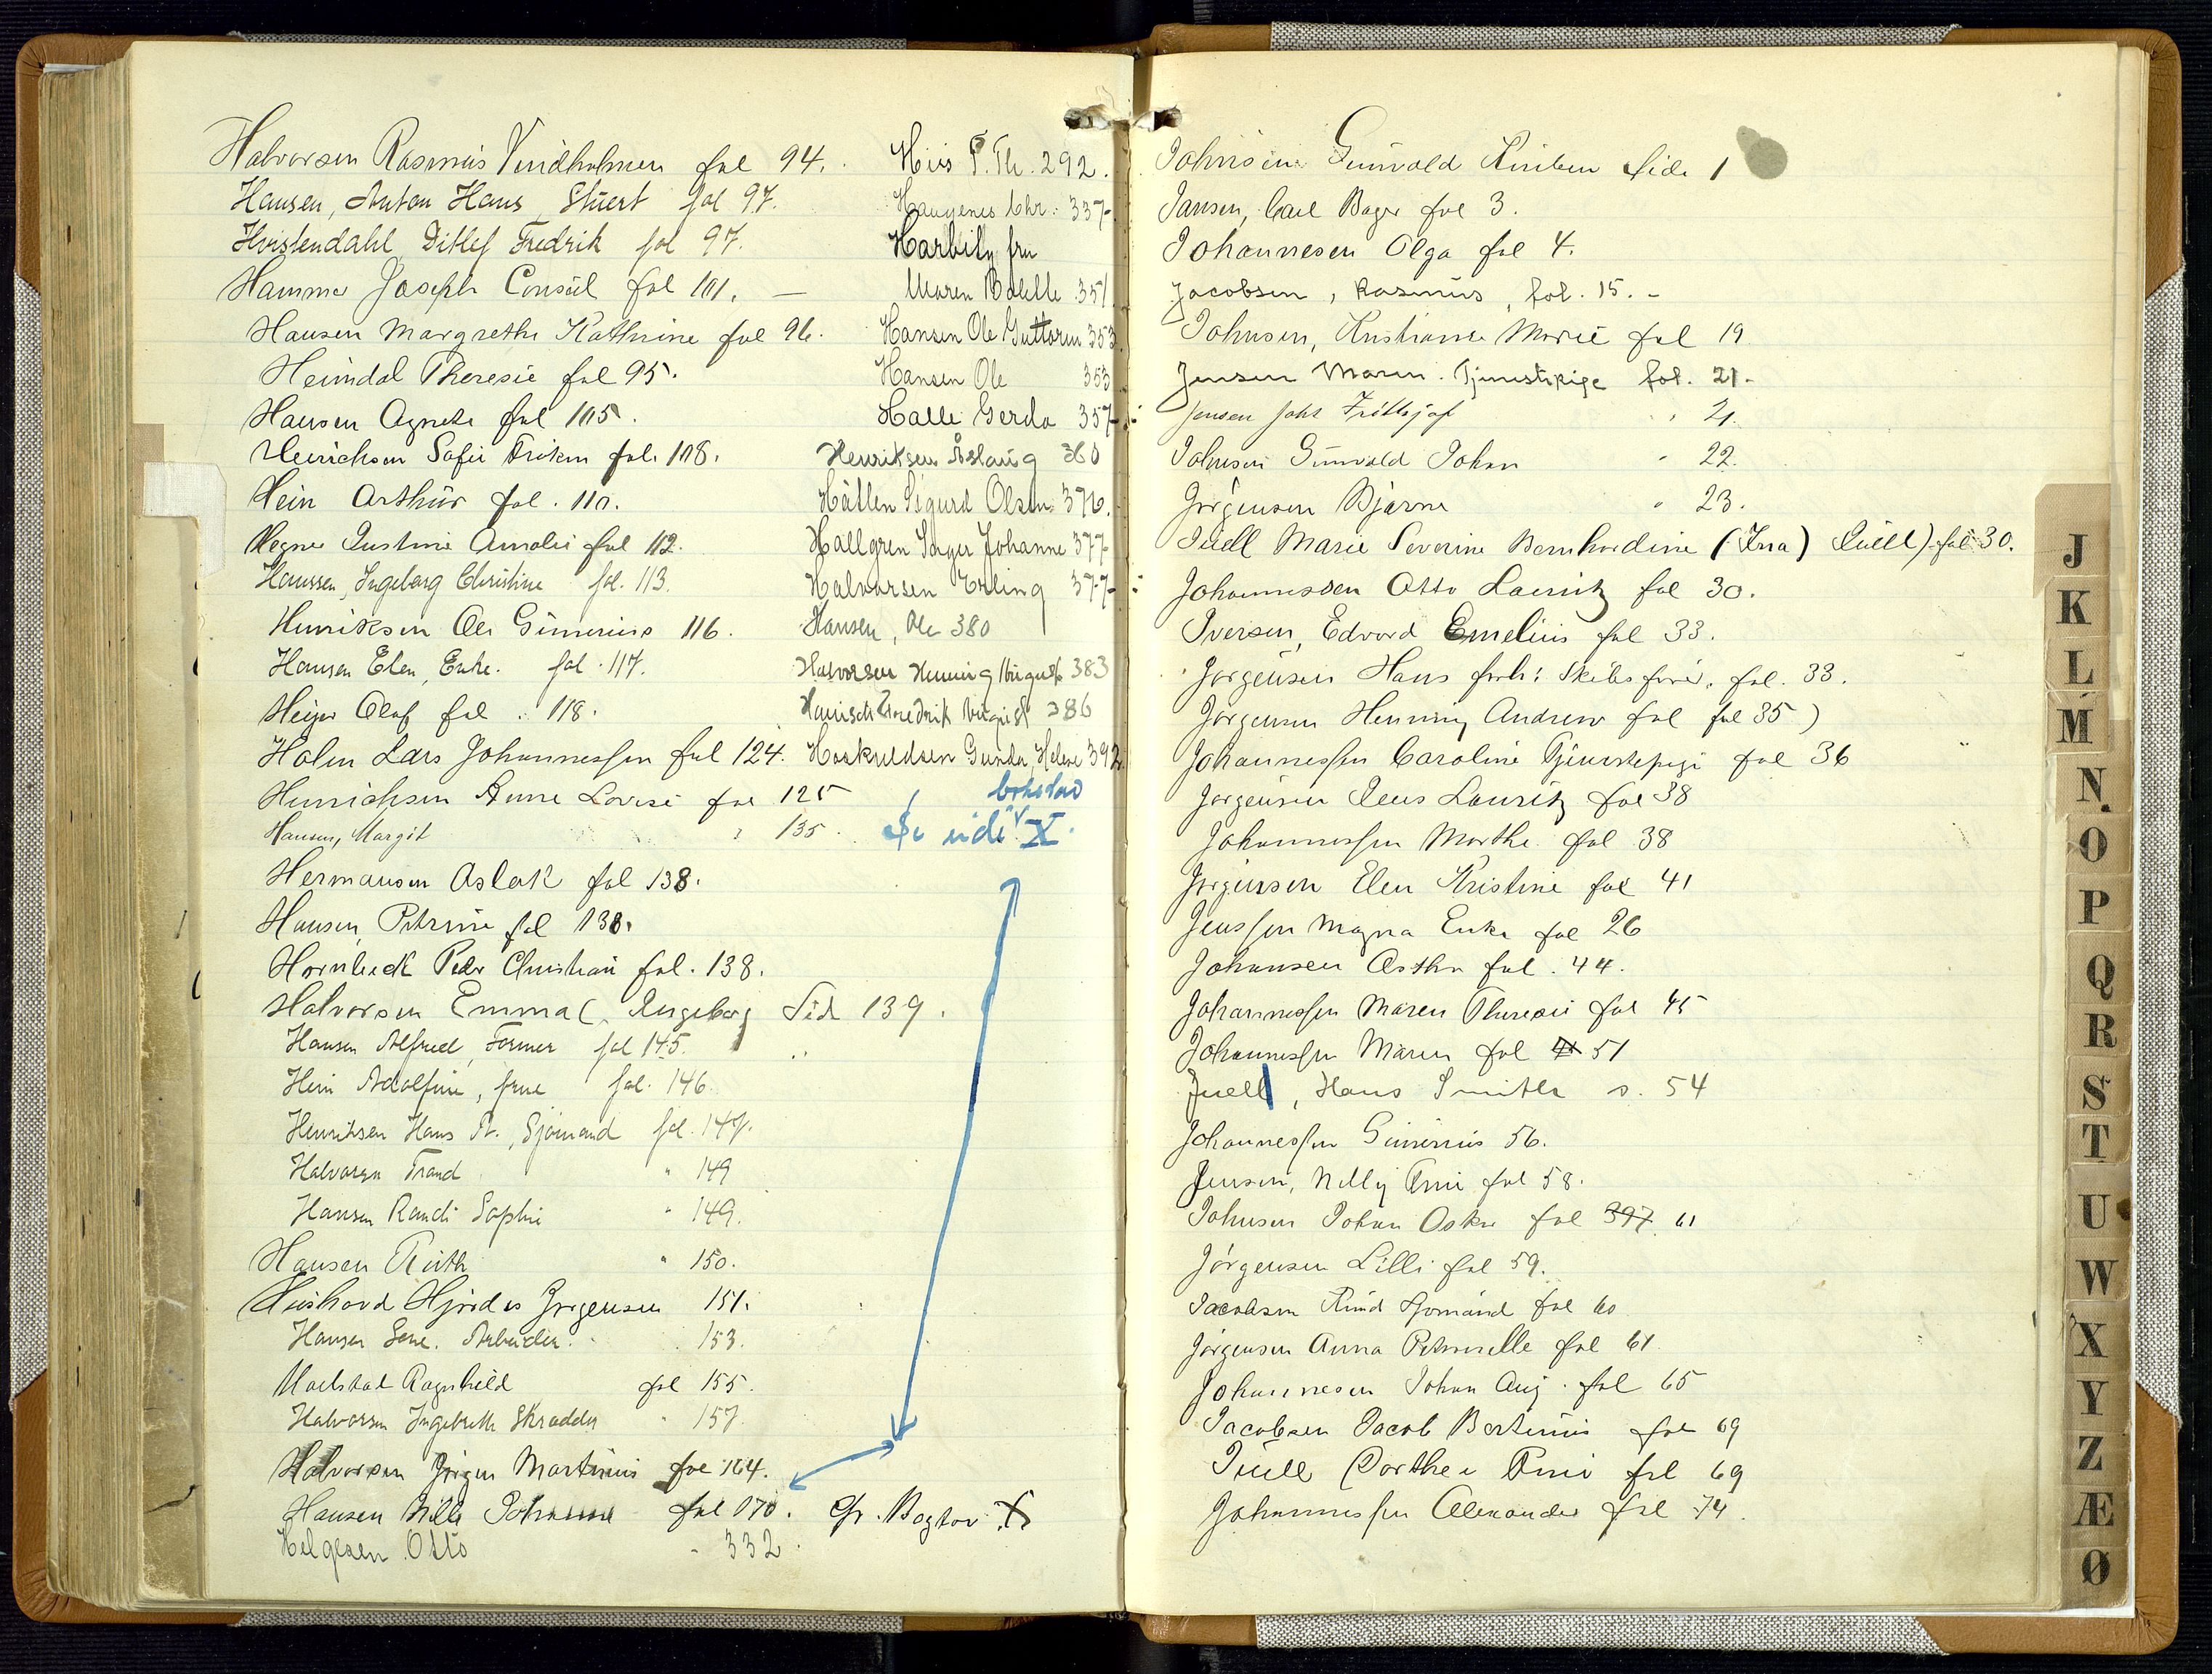 Halvorsen Rasmus Vindholmen fol 94.
Hansen, Anton Hans, Stuert fol 97.
Hvistendahl, Ditlef Fredrik fol 97.
Hammer Joseph Consul fol 101. —
Hansen Margrethe Kathrine fol 96.
Heimdal Theresie fol 95.
Hansen Agnete fol 105.
Henrichsen Sofie Frøken fol. 108.
Hein Arthur fol. 110.
Hegner Justine Amalie fol 112.
Hanssen, Ingeborg Christine fol. 113.
Henriksen Ole Gunerius 116.
Hansen Elen, Enke. fol. 117.
Heijer Olaf fol. 118.
Holm Lars Johannessen fol 124.
Hinrichsen Anne Lovise fol 125
Hansen, Margit " 135.
Hermansen Aslak fol 138.
Hansen Petrine fol 138.
Hornbeck Peder Christian fol. 138.
Halvorsen Emma (Ingeborg Side 139.
Hansen Alfred, Former fol 145.
Hein Adolfine, frue fol. 146.
Henriksen Hans A., Sjømand fol. 147.
Halvorsen Trand " 149
Hansen Randi Sophie " 149.
Hansen Ruth " 150.
Hushovd Hjørdis Jørgensen 151.
Hansen Lene. Arbeider. 153.
Ragnhild fol 155.
Halvorsen Ingebreth Skrædder " 157.
Halvorsen Jørgen Martinius fol 164.
Hansen Nille Johanne fol 170. Cfr. Bogstav X
Helgesen Otto " 332.
Hiis P. Th. 292.
Haugenes Chr. 337
Harbitz fru
Maren Bolette 351
Hansen Ole Guttorm 353
Hansen Ole 353
Halle Gerda 357
Henriksen Åslaug 360
Håtten Sigurd Olsen 376.
Hallgren Inger Johanne 377
Halvorsen Erling 377
Hansen, Ole 380
Halvorsen Henning August 383
Fredrik August 386
Hoskuldsen Gunda, Helene 392
bokstav
Se side X.
Johnsen Gunvald Kniben Side 1
Jansen, Carl Bager fol 3.
Johannesen Olga fol 4.
Jacobsen, Rasmus, fol. 15.-
Johnsen, Kristiane Marie fol 19
Jensen Maren. Tjenestepige fol. 21.
Jensen Johs Frithjof " 21.
Johnsen Gunvald Johan " 22.
Jørgensen Bjarne " 23.
Juell Marie Severine Bernhardine (Fra) Juell) fol 30.
Johannessen Otto Lauritz fol 30.
Iversen, Edvard Emelius fol 33.
Jørgensen Hans forh: Skibsfører. fol. 33.
Jørgensen Henning Andrew fol fol 35)
Johannessen Caroline Tjenestepige fol 36
Jørgensen Jens Lauritz fol 38
Johannessen Marthe fol 38
Jørgensen Elen Kristine fol 41
Jenssen Magna Enke fol 26
Johansen Asthn fol. 44.
Johannessen Maren Theresie fol 45
Johannessen Maren fol 51
Juell, Hans Smith s. 54
Johannessen Gunerius 56.
Jensen, Nelly Trine fol 58.
Johnsen Johan Oskar fol 397 61
Jørgensen Lilli fol 59.
Jacobsen Knud Sjømand fol 60
Jørgensen Anna Petronelle fol 61
Johannesen Johan Aug. fol 65
Jacobsen Jacob Bertinius fol 69
Juell Dorthea Trine fol 69
Johannessen Alexander fol 74.
J
K
L
M
N
O
P
Q
R
S
T
U
W
X
Y
Z
Æ
Ø